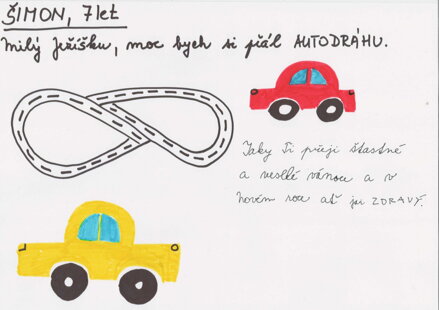 ŠIMON, 7 let
Milý Ježíšku, moc bych si přál AUTODRÁHU.
Taky Ti přeji šťastné
a veselé vánoce a v
novém roce ať jsi ZDRAVÝ.